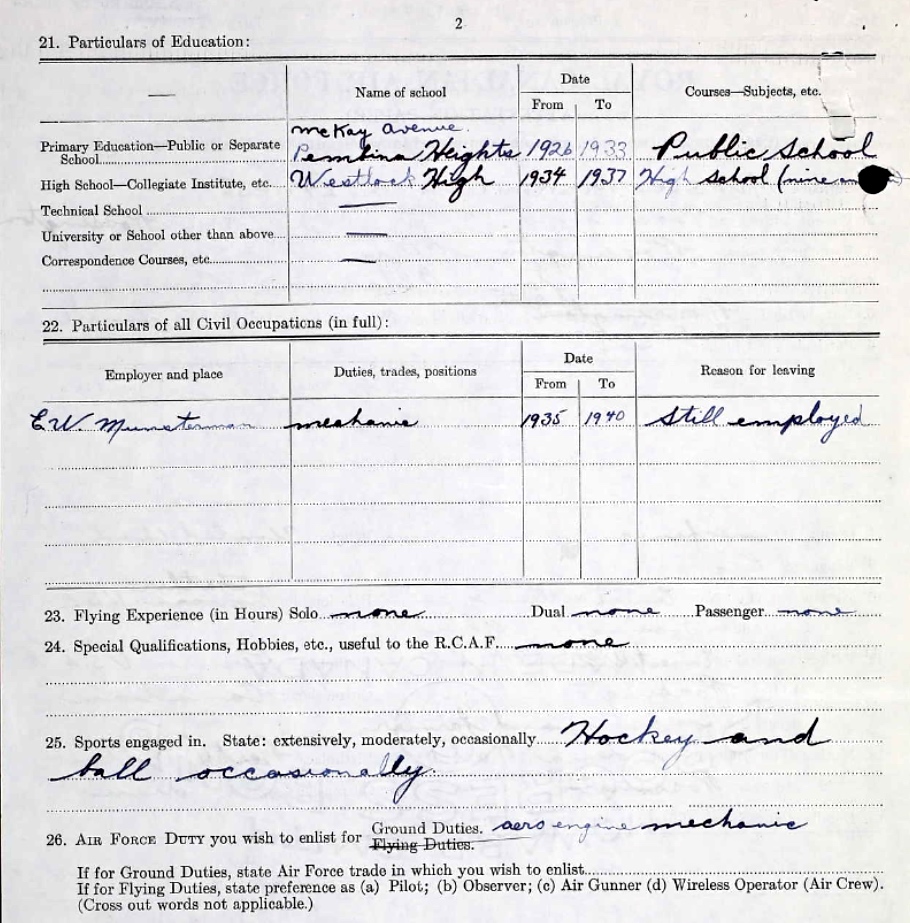 2
21. Particulars of Education:
Name of school
Date
From To
Courses—Subjects, etc.
McKay Avenue.
Primary Education—Public or Separate
School Pembina Heights 1926 1933 Public School
High School—Collegiate Institute, etc. Westlock High 1934 1937 High School (nine
Technical School —
University or School other than above —
Correspondence Courses, etc. —
22. Particulars of all Civil Occupations (in full):
Employer and place
Duties, trades, positions
Date
From To
Reason for leaving
E.W. Munsterman mechanic 1935 1940 Still employed
23. Flying Experience (in Hours) Solo none Dual none Passenger none
24. Special Qualifications, Hobbies, etc., useful to the R.C.A.F. none
25. Sports engaged in. State: extensively, moderately, occasionally Hockey and
ball occasionally.
26. AIR FORCE DUTY you wish to enlist for Ground Duties. aero engine mechanic
Flying Duties.
If for Ground Duties, state Air Force trade in which you wish to enlist
If for Flying Duties, state preference as (a) Pilot; (b) Observer; (c) Air Gunner (d) Wireless Operator (Air Crew).
(Cross out words not applicable.)